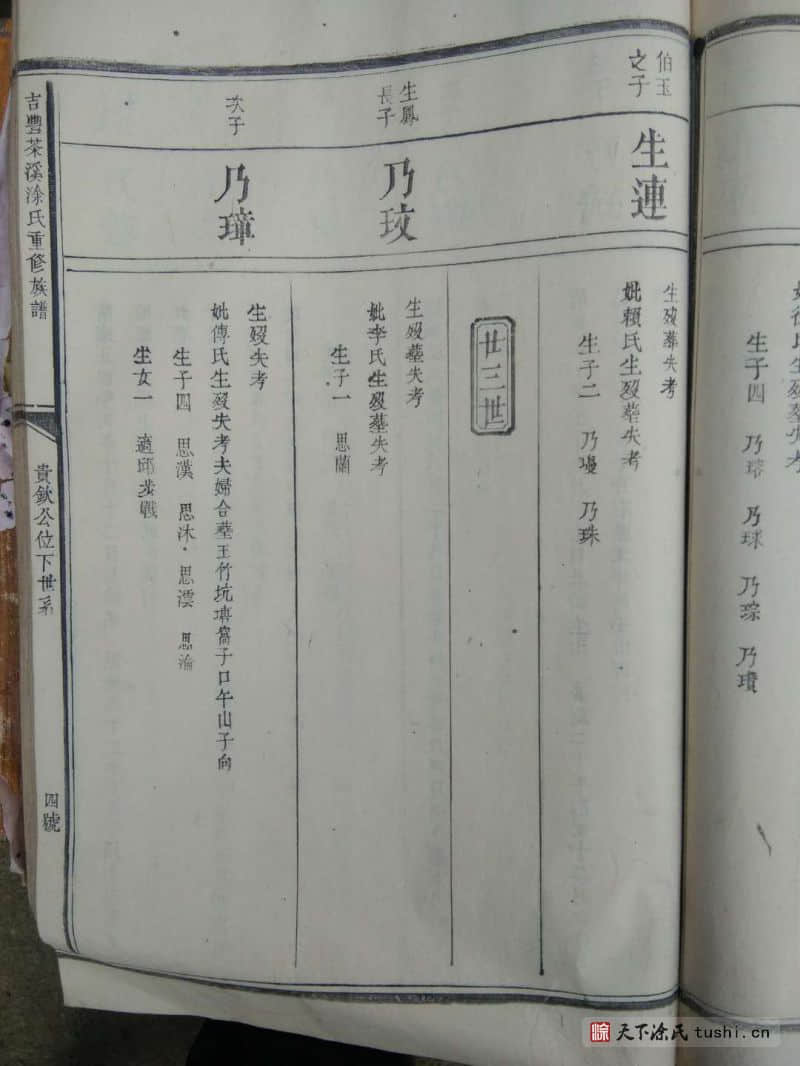 氏生歿失考
生子四 乃球 乃琮 乃瓊
伯玉之子
生連
生歿葬失考
妣賴氏生歿葬失考
生子二 乃珠
廿三世
生鳳長子
乃玟
生歿葬失考
妣李氏生歿葬失考
生子一 思蘭
次子
乃璋
生歿失考
妣傅氏生歿失考夫婦合葬王竹坑窩子口午山子向
生子四 思漢 思沐 思澐 思渝
生女一 適邱
吉豐茶溪涂氏重修族譜
貴欽公位下世系
四號
天下涂氏 tushi.cn